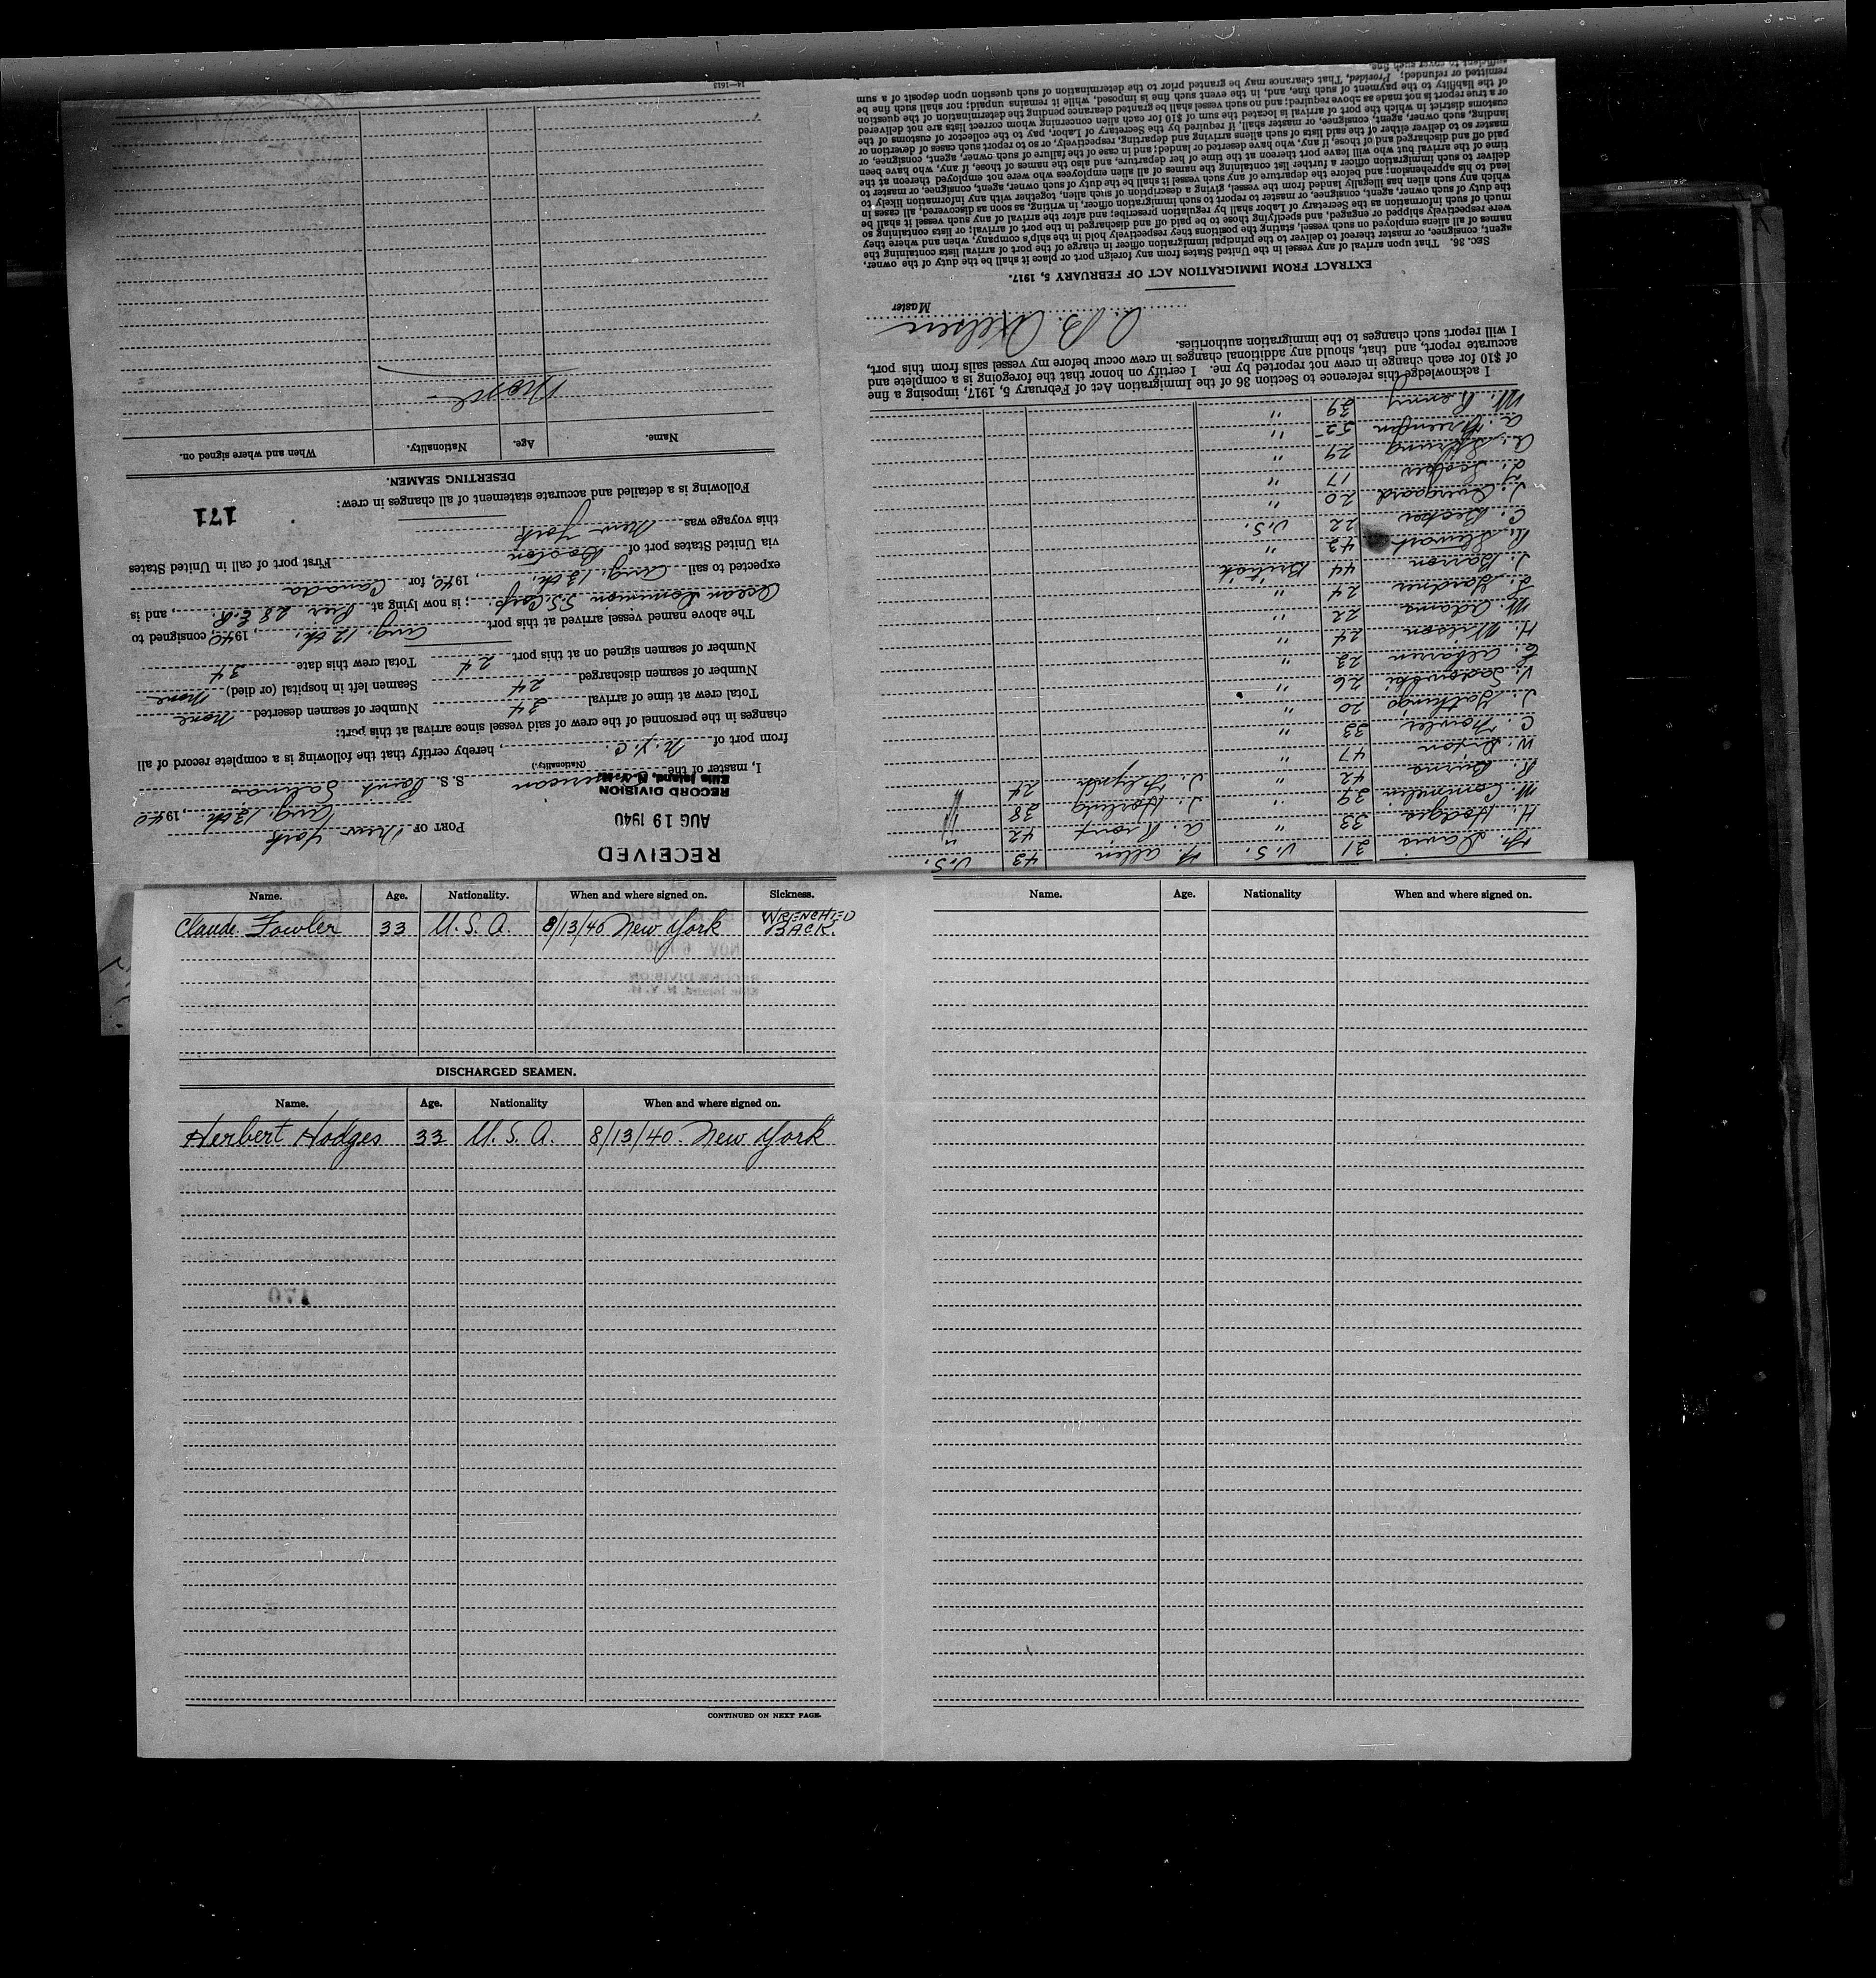 Name. Age. Nationality. When and where signed on. Sickness.
Claude Fowler 33 U. S. A. 8/13/40 New York WRENCHED BACK.
DISCHARGED SEAMEN.
Name. Age. Nationality When and where signed on.
Herbert Hodges 33 U. S. A. 8/13/40 New York
CONTINUED ON NEXT PAGE.
Name. Age. Nationality When and where signed on.
170
RECEIVED
AUG 19 1940
RECORD DIVISION
Ellis Island, N. Y. H.
PORT OF New York
Aug. 13th, 1940
I, master of the American S. S. Point Salinas
(Nationality.)
from port of N.Y.C., hereby certify that the following is a complete record of all
changes in the personnel of the crew of said vessel since arrival at this port:
Total crew at time of arrival 34 Number of seamen deserted None
Number of seamen discharged 24 Seamen left in hospital (or died) None
Number of seamen signed on at this port 24 Total crew this date 34
The above named vessel arrived at this port Aug. 12th, 1940, consigned to
Ocean Dominion S.S. Corp.; is now lying at Pier 28 E.R., and is
expected to sail Aug. 13th, 1940, for Canada
via United States port of Boston First port of call in United States
this voyage was New York
171
Following is a detailed and accurate statement of all changes in crew:
DESERTING SEAMEN.
Name. Age. Nationality. When and where signed on.
None
14—1613
Davis 31 U.S. Allen 43 U.S.
H. Hodges 33 " A. 42 "
M. 39 " J. 38 "
R. Burns 42 " J. 24 "
W. 47 "
C. Fowler 33 "
J. 20 "
V. 26 "
E. 23 "
H. Wilson 24 "
M. Adams 22 "
L. Gardner 24 "
J. Barron 44 British
R. Stewart 43 "
C. Becker 22 U.S.
J. 20 "
17 "
29 "
A. 52 "
M. Kenny 39 "
I acknowledge this reference to Section 36 of the Immigration Act of February 5, 1917, imposing a fine
of $10 for each change in crew not reported by me. I certify on honor that the foregoing is a complete and
accurate report, and that, should any additional changes in crew occur before my vessel sails from this port,
I will report such changes to the immigration authorities.
Master
EXTRACT FROM IMMIGRATION ACT OF FEBRUARY 5, 1917.
SEC. 36. That upon arrival of any vessel in the United States from any foreign port or place it shall be the duty of the owner,
agent, consignee, or master thereof to deliver to the principal immigration officer in charge of the port of arrival lists containing the
names of all aliens employed on such vessel, stating the positions they respectively hold in the ship's company, when and where they
were respectively shipped or engaged, and specifying those to be paid off and discharged in the port of arrival; or lists containing so
much of such information as the Secretary of Labor shall by regulation prescribe; and after the arrival of any such vessel it shall be
the duty of such owner, agent, consignee, or master to report to such immigration officer, in writing, as soon as discovered, all cases in
which any such alien has illegally landed from the vessel, giving a description of such alien, together with any information likely to
lead to his apprehension; and before the departure of any such vessel it shall be the duty of such owner, agent, consignee, or master to
deliver to such immigration officer a further list containing the names of all alien employees who were not employed thereon at the
time of the arrival but who will leave port thereon at the time of her departure, and also the names of those, if any, who have been
paid off and discharged and of those, if any, who have deserted or landed; and in case of the failure of such owner, agent, consignee, or
master so to deliver either of the said lists of such aliens arriving and departing, respectively, or so to report such cases of desertion or
landing, such owner, agent, consignee, or master shall, if required by the Secretary of Labor, pay to the collector of customs of the
customs district in which the port of arrival is located the sum of $10 for each alien concerning whom correct lists are not delivered
or a true report is not made as above required; and no such vessel shall be granted clearance pending the determination of the question
of the liability to the payment of such fine, and, in the event such fine is imposed, while it remains unpaid; nor shall such fine be
remitted or refunded; Provided, That clearance may be granted prior to the determination of such question upon deposit of a sum
sufficient to cover such fine.